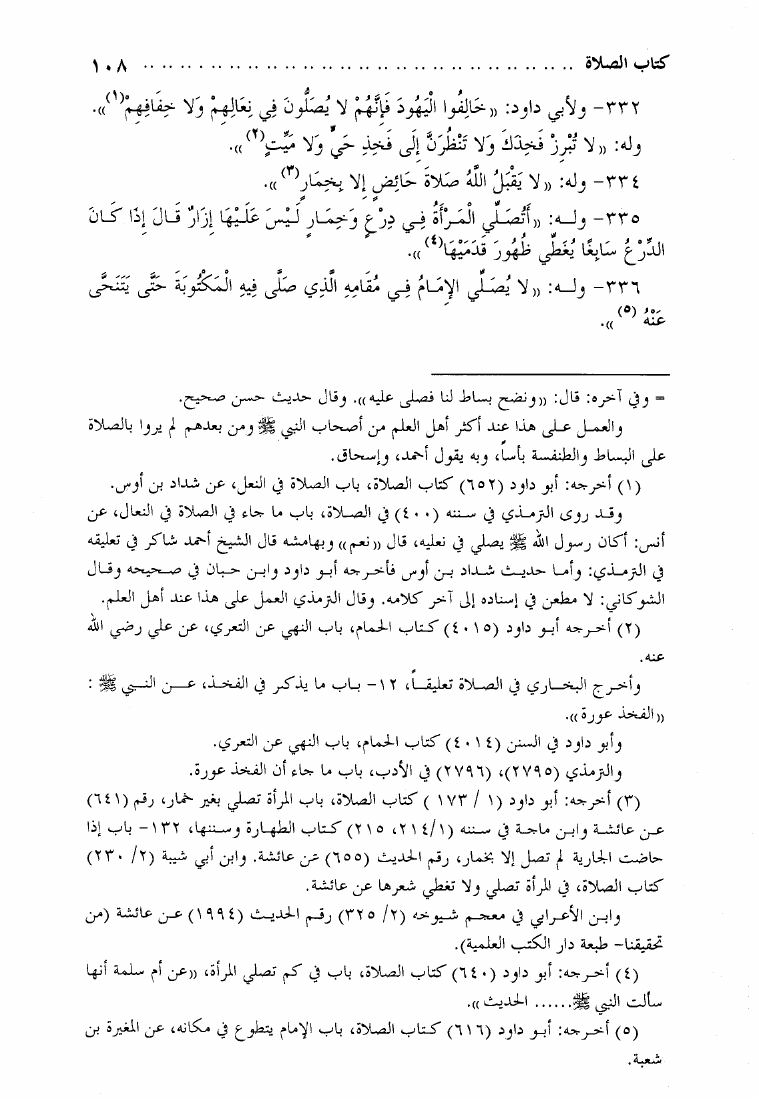 كتاب الصلاة .......................................................... ١٠٨
٣٣٢- ولأبي داود: «خَالِفُوا الْيَهُودَ فَإِنَّهُمْ لا يُصَلُّونَ فِي نِعَالِهِمْ وَلا خِفَافِهِمْ(١)».
وله: «لا تُبْرِزْ فَخِذَكَ وَلا تَنْظُرَنَّ إِلَى فَخِذِ حَيٍّ وَلا مَيِّتٍ(٢)».
٣٣٤- وله: «لا يَقْبَلُ اللَّهُ صَلاةَ حَائِضٍ إِلا بِخِمَارٍ(٣)».
٣٣٥- ولـه: «أَتُصَلِّي الْمَرْأَةُ فِي دِرْعٍ وَخِمَارٍ لَيْسَ عَلَيْهَا إِزَارٌ قَالَ إِذَا كَانَ
الدِّرْعُ سَابِغًا يُغَطِّي ظُهُورَ قَدَمَيْهَا(٤)».
٣٣٦- ولـه: «لا يُصَلِّي الإِمَامُ فِي مُقَامِهِ الَّذِي صَلَّى فِيهِ الْمَكْتُوبَةَ حَتَّى يَتَنَحَّى
عَنْهُ(٥)».
= وفي آخره: قال: «ونضح بساط لنا فصلى عليه». وقال حديث حسن صحيح.
والعمل على هذا عند أكثر أهل العلم من أصحاب النبي ﷺ ومن بعدهم لم يروا بالصلاة
على البساط والطنفسة بأساً، وبه يقول أحمد، وإسحاق.
(١) أخرجه: أبو داود (٦٥٢) كتاب الصلاة، باب الصلاة في النعل، عن شداد بن أوس.
وقد روى الترمذي في سننه (٤٠٠) في الصلاة، باب ما جاء في الصلاة في النعال، عن
أنس: أكان رسول الله ﷺ يصلي في نعليه، قال «نعم» وبهامشه قال الشيخ أحمد شاكر في تعليقه
في الترمذي: وأما حديث شداد بن أوس فأخرجه أبو داود وابن حبان في صحيحه وقال
الشوكاني: لا مطعن في إسناده إلى آخر كلامه. وقال الترمذي العمل على هذا عند أهل العلم.
(٢) أخرجه أبو داود (٤٠١٥) كتاب الحمام، باب النهي عن التعري، عن علي رضي الله
عنه.
وأخرج البخاري في الصلاة تعليقاً، ١٢- باب ما يذكر في الفخذ، عن النبي ﷺ :
«الفخذ عورة».
وأبو داود في السنن (٤٠١٤) كتاب الحمام، باب النهي عن التعري.
والترمذي (٢٧٩٥)، (٢٧٩٦) في الأدب، باب ما جاء أن الفخذ عورة.
(٣) أخرجه: أبو داود (١ / ١٧٣ ) كتاب الصلاة، باب المرأة تصلي بغير خمار، رقم (٦٤١)
عن عائشة وابن ماجة في سننه (٢١٤/١، ٢١٥) كتاب الطهارة وسننها، ١٣٢- باب إذا
حاضت الجارية لم تصل إلا بخمار، رقم الحديث (٦٥٥) عن عائشة. وابن أبي شيبة (٢/ ٢٣٠)
كتاب الصلاة، في المرأة تصلي ولا تغطي شعرها عن عائشة.
وابن الأعرابي في معجم شيوخه (٢/ ٣٢٥) رقم الحديث (١٩٩٤) عن عائشة (من
تحقيقنا- طبعة دار الكتب العلمية).
(٤) أخرجه: أبو داود (٦٤٠) كتاب الصلاة، باب في كم تصلي المرأة، «عن أم سلمة أنها
سألت النبي ﷺ...... الحديث».
(٥) أخرجه: أبو داود (٦١٦) كتاب الصلاة، باب الإمام يتطوع في مكانه، عن المغيرة بن
شعبة.